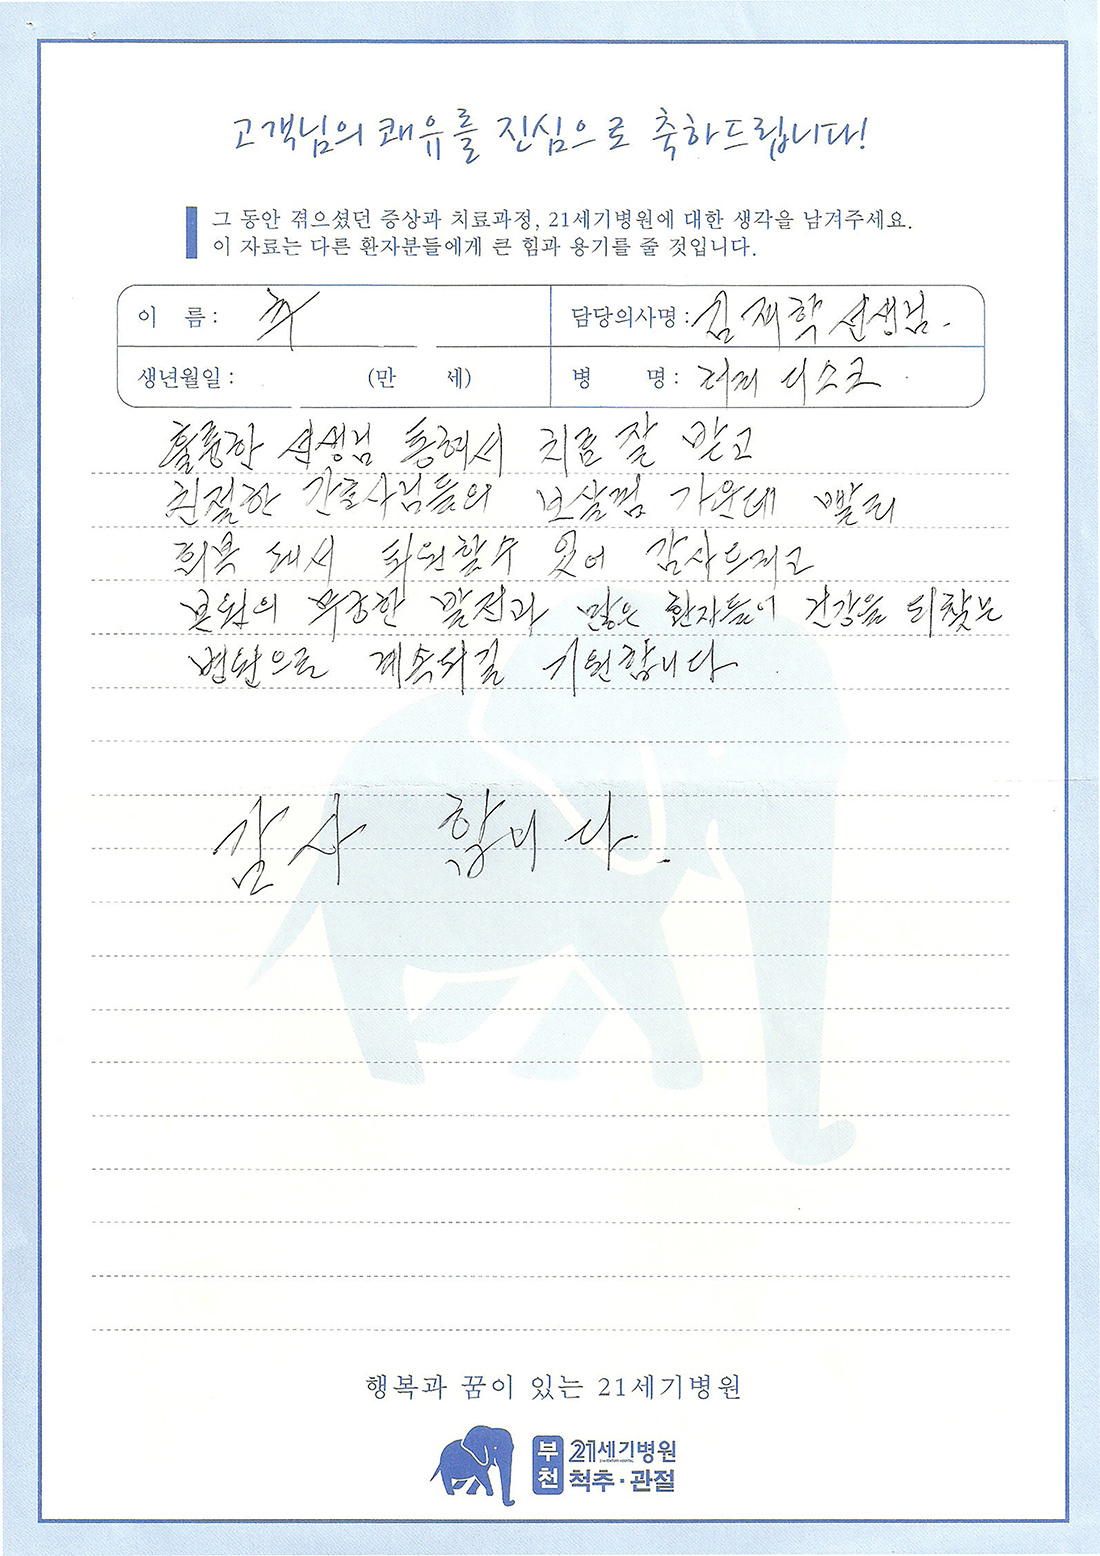 고객님의 쾌유를 진심으로 축하드립니다!
그 동안 겪으셨던 증상과 치료과정, 21세기병원에 대한 생각을 남겨주세요.
이 자료는 다른 환자분들에게 큰 힘과 용기를 줄 것입니다.
이 름 : 담당의사명 : 김재학 선생님.
생년월일 : (만 세) 병 명 : 허리 디스크
훌륭한 선생님 통해서 치료 잘 받고
친절한 간호사님들의 보살핌 가운데 빨리
회복 돼서 퇴원할수 있어 감사드리고
본원의 무궁한 발전과 많은 환자들이 건강을 되찾는
병원으로 계속되길 기원합니다.
감사 합니다.
행복과 꿈이 있는 21세기병원
부천 21세기병원
척추·관절